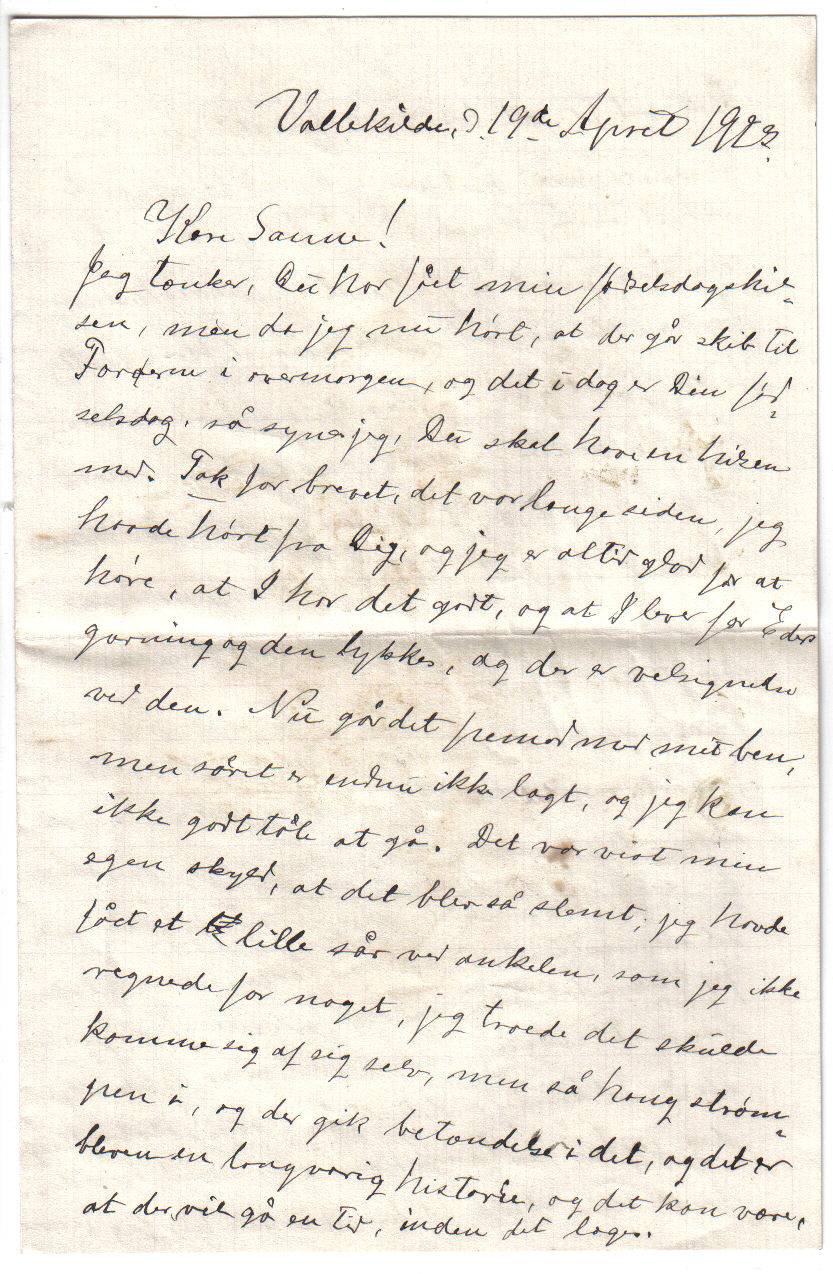 Vallekilde, d. 19de April 1923.
Kære Sanne!
Jeg tænker, Du har fået min fødselsdagshil-
sen, men da jeg nu hørt, at der går skib til
Færøerne i overmorgen, og det i dag er Din fød-
selsdag, så synes jeg, Du skal have en hilsen
med. Tak for brevet, det var længe siden, jeg
havde hørt fra Dig, og jeg er altid glad for at
høre, at I har det godt, og at I lever for Eders
gærning og den lykkes, og der er velsignelse
ved den. Nu går det fremad med mit ben,
men såret er endnu ikke lægt, og jeg kan
ikke godt tåle at gå. Det var vist min
egen skyld, at det blev så slemt; jeg havde
fået et lille sår ved ankelen, som jeg ikke
regnede for noget, jeg troede det skulde
komme sig af sig selv, men så hang strøm-
pen i, og der gik betændelse i det, og det er
bleven en langvarig historie, og det kan være,
at der vil gå en tid, inden det læges.